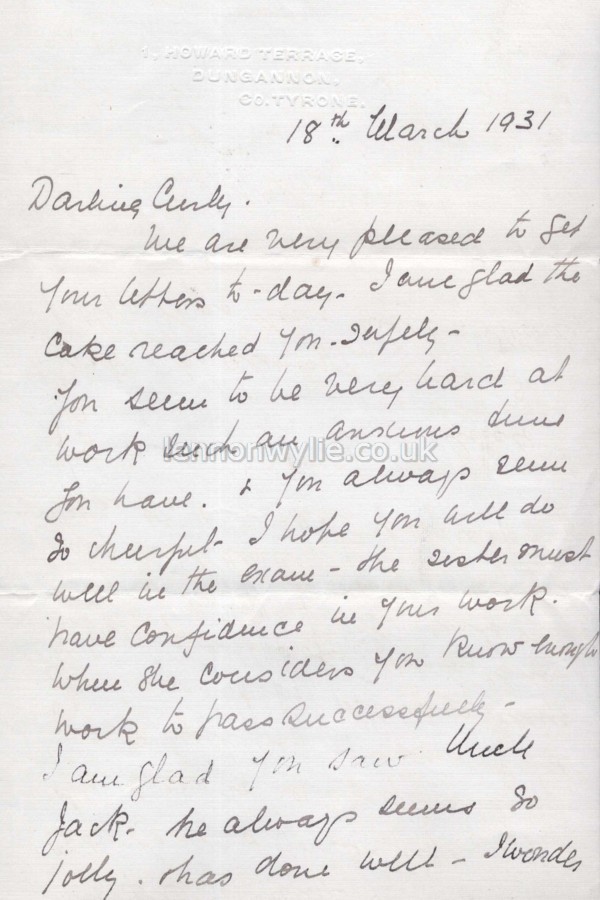 1, HOWARD TERRACE,
DUNGANNON,
CO. TYRONE.
18th March 1931
Darling Curly.
We are very pleased to get
your letters to-day - I am glad the
cake reached you - safely -
You seem to be very hard at
work such an anxious time
lennonwylie.co.uk
you have. & you always seem
so cheerful - I hope you will do
well in the exam - the sister must
have confidence in your work.
when she considers you know enough
work to pass successfully -
I am glad you saw Uncle
Jack - he always seems so
jolly. & has done well - I wonder